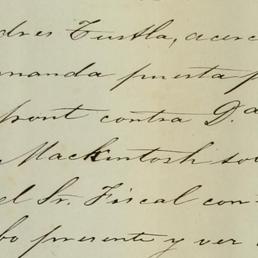 dres Tustla, acerc
manda puesta p
front contra D.a
Mackintosh sob
el Sr. Fiscal con-
bo presente y ver